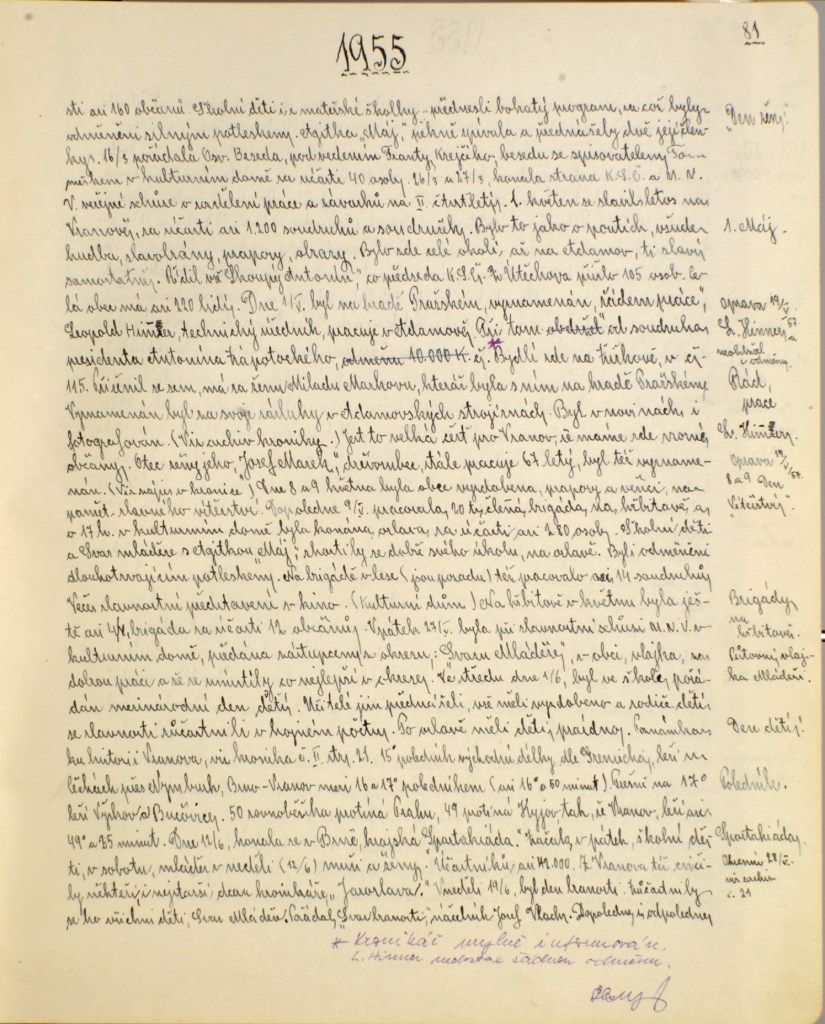 81
1955
sti asi 160 občanů. Školní děti i z mateřské školky - přednesli bohatý program, za což byly
odměněni silným potleskem. Agitka „Máj", pěkně zpívala a přednášely dvě její člen-
„Den ženy".
ky. 16/3 pořádala Osv. Beseda, pod vedením Franty Krejčího, besedu se spisovatelem
v kulturním domě za účasti 40 osob. 26/3 a 27/3, konala strana K.S.Č. a M. N.
V. veřejné schůze o rozdělení práce a závazků na II. čtvrtletí. 1. květen se slavil letos na
Vranově, za účasti asi 1.200 soudruhů a soudružek. Bylo to jako o poutích, všude
1. Máj.
hudba, slavobrány, prapory, obrazy. Bylo zde celé okolí, až na Adamov, ti slaví
samostatně. Řídil vše Skoupý Antonín, co předseda K.S.Č. Z Útěchova přišlo 105 osob. Ce-
lá obec má asi 220 lidí. Dne 1/V. byl na hradě Pražském, vyznamenán, „řádem práce",
oprava
Leopold Himer, technický úředník, pracuje v Adamově. Při tom obdržel od soudruha
L. Himer
presidenta Antonína Zápotockého, odměnu 10.000 K. čs. Bydlí zde na Žižkově, v čj.
neobdržel
odměny.
115. Přiženil se sem, má za ženu Miladu Markovu, kteráž byla s ním na hradě Pražském.
Řád,
práce
Vyznamenán byl za svoje zásluhy v Adamovských strojírnách. Byl v novinách i
fotografován. (Viz archiv kroniky.) Jest to velká čest pro Vranov, že máme zde vzorné
L. Himer.
občany. Otec ženy jeho, „Josef Marek", dřevorubec, stále pracuje 67 letý, byl též vyzname-
oprava
nán. (Viz zápis v kronice) Dne 8 a 9 května byla obec vyzdobena, prapory a věnci, na
8 a 9 Den
památ. slavného vítězství. Dopoledne 9/V. pracovala, 20 ti, členná, brigáda, na hřbitově, a
„Vítězství".
o 17 h. v kulturním domě byla konána oslava, za účasti asi 280 osob. Školní děti
a Svaz mládeže s Agitkou Máj", zhostily se dobře svého úkolu, na oslavě. Byli odměněni
dlouhotrvajícím potleskem. Na brigádě v lese (jsou poradu) též pracovalo asi, 14 soudruhů
Večer slavnostní představení v kino. (Kulturní dům.) Na hřbitově v květnu byla ješ-
Brigády,
na
hřbitově.
tě asi 4x, brigáda za účasti 12 občanů. V pátek 27/V. byla při slavnostní schůzi M.N.V. v
kulturním domě, předána zástupcem z okresu, „Svazu Mládeže", v obci, vlajka, za
Putovní vlaj-
dobrou práci a že se umístily, co nejlepší v okrese. Ve středu dne 1/6, byl ve škole, pořá-
ka Mládeži.
dán mezinárodní den dětí. Učitelé jim přednášeli, vše měli vyzdobeno a rodiče dětí
se slavnosti zúčastnili v hojném počtu. Po oslavě měli děti, prázdno. Poznámka
Den dětí!
ku historii Vranova, viz kronika č. II. str. 21. 15° poledník východní délky dle Grenwiche, leží v
Čechách přes Nymburk, Brno-Vranov mezi 16 a 17° poledníkem (asi 16° a 50 minut) Přesně na 17°
Poledník.
leží Vyškov a Bučovice. 50 rovnoběžka protíná Prahu, 49 protíná Kyjov tak, že Vranov, leží asi
49° a 25 minut. Dne 12/6, konala se v Brně, krajská Spartakiáda." Začala, v pátek, školní dě-
Spartakiáda,
ti, v sobotu, mládež v neděli (12/6) muži a ženy. Účastníků, asi 42.000. Z Vranova též cviči-
Okresní
viz archiv
č. 21
ly někteří, i nejstarší, dcera kronikáře, „Jaroslava". V neděli 19/6, byl den branosti. Zúčastnily
se ho všichni děti, Svaz Mládeže. Pořádal, „Svaz branosti", náčelník Josef Vlach. Dopoledne, i odpoledne,
* Kronikář mylně informován.
L. Himer nedostal žádnou odměnu.